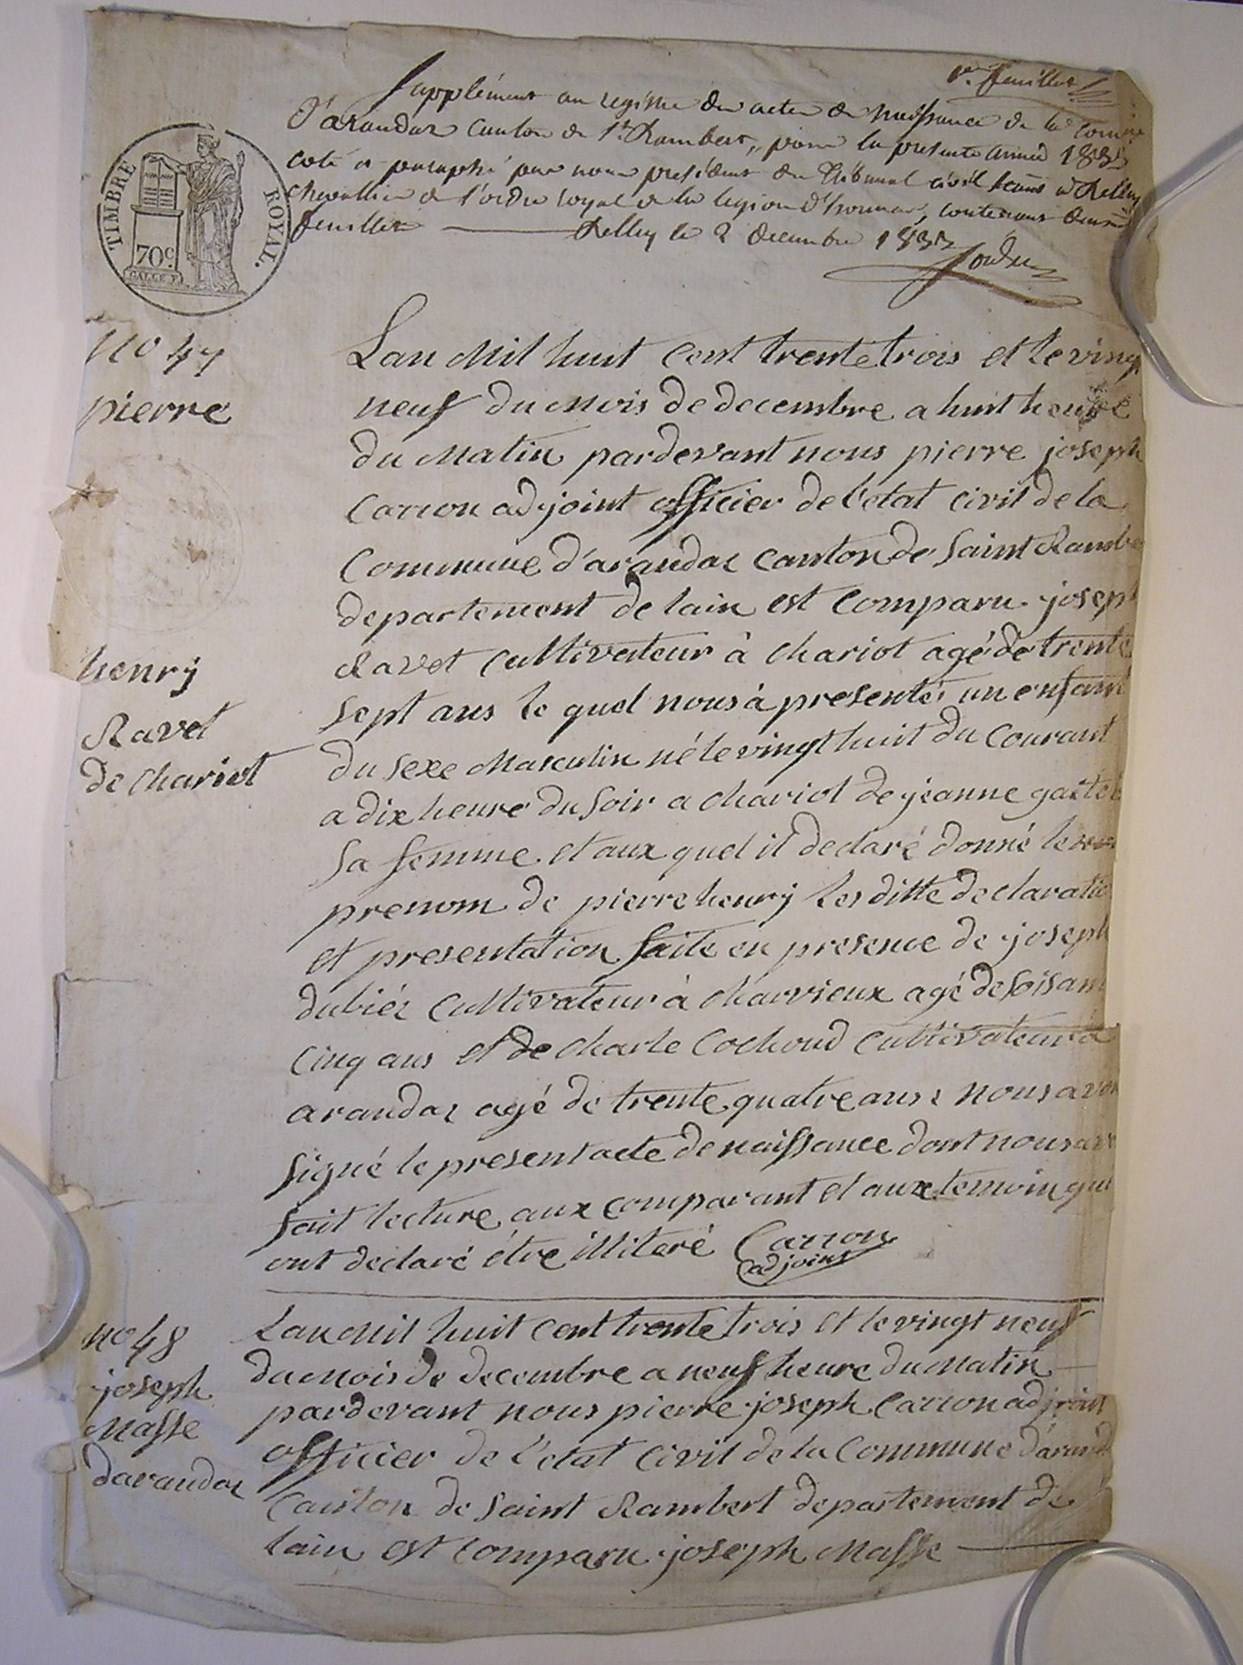 1er feuillet
Supplément au registre des actes de naissance de la Commune
d'arandas Canton de St Rambert, pour la presente année 1833
coté et paraphé par nous president du Tribunal civil séant à Belley
chevallier de l'ordre royal de la legion d'honneur, contenant deux
feuillets Belley le 2 decembre 1833
TIMBRE ROYAL.
70c.
no 47
pierre
henry
Ravet
de Chariot
Lan Mil huit Cent trente trois et le ving
neuf du Mois de decembre a huit heure
du Matin pardevant nous pierre joseph
Carron adjoint officier de l'etat Civil de la
Commune d'arandaz Canton de Saint Rambe
departement de lain est Comparu joseph
Ravet Cultivateur à Chariot agé de trente
Sept ans le quel nous à presentée un enfant
du sexe Masculin né le vingt huit du Courant
a dix heure du Soir a Chariot de jeanne
Sa femme et aux quel il declaré donné le
prenom de pierre henry les ditte declaratio
et presentation faite en presence de joseph
dubiéz Cultivateur à Charvieux agé de Soisant
Cinq ans et de Charle Cochoud Cultivateur à
arandaz agé de trente quatre ans nous avon
Signé le present acte de naissance dont nous av
fait lecture aux Comparant et aux temoin qui
ont declaré être illiteré Carron
adjoint
no 48
joseph
Masse
darandaz
Lan Mil huit Cent trente trois et le vingt neuf
du Mois de decembre a neuf heure du Matin
pardevant nous pierre joseph Carron adjoint
officier de l'etat Civil de la Commune d'arand
Canton de Saint Rambert departement de
lain est Comparu joseph Masse